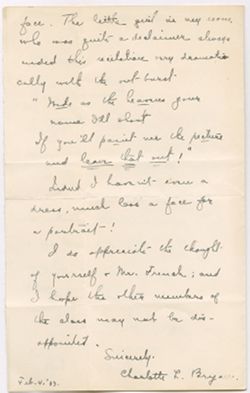 face. The little girl in my room,
who was quite a declaimer always
ended this recitation very dramati-
cally with the out-burst
" as the heavens
I'll shoot
If you'll paint me the picture
and leave that out!"
Indeed I haven't even a
dress, much less a face for
a portrait-!
I do appreciate the thought
of yourself + Mr. French; and
I hope the other members of
the class may not be dis-
appointed.
Sincerely,
Charlotte L.
Feb. 4,